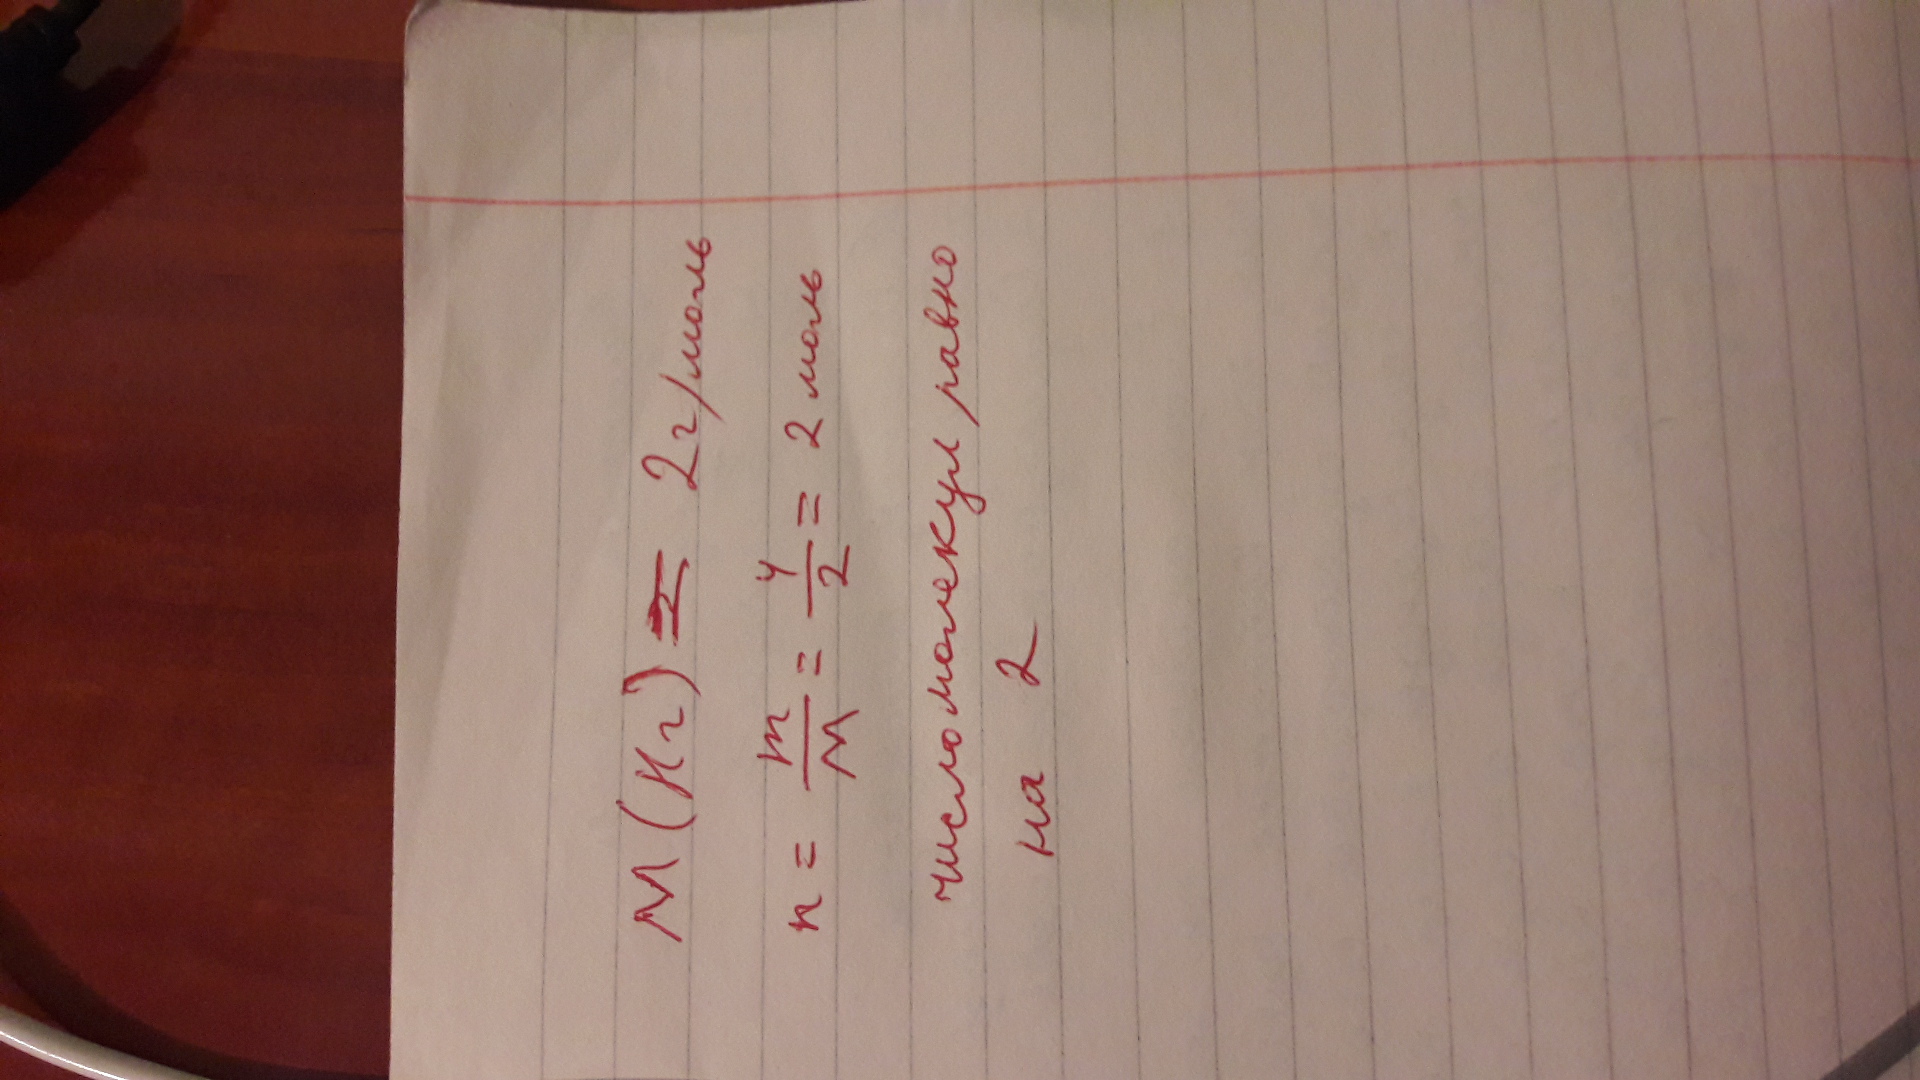 M(H2) = 2г/моль
n = m/M = 4/2 = 2 моль
число молекул равно
на 2